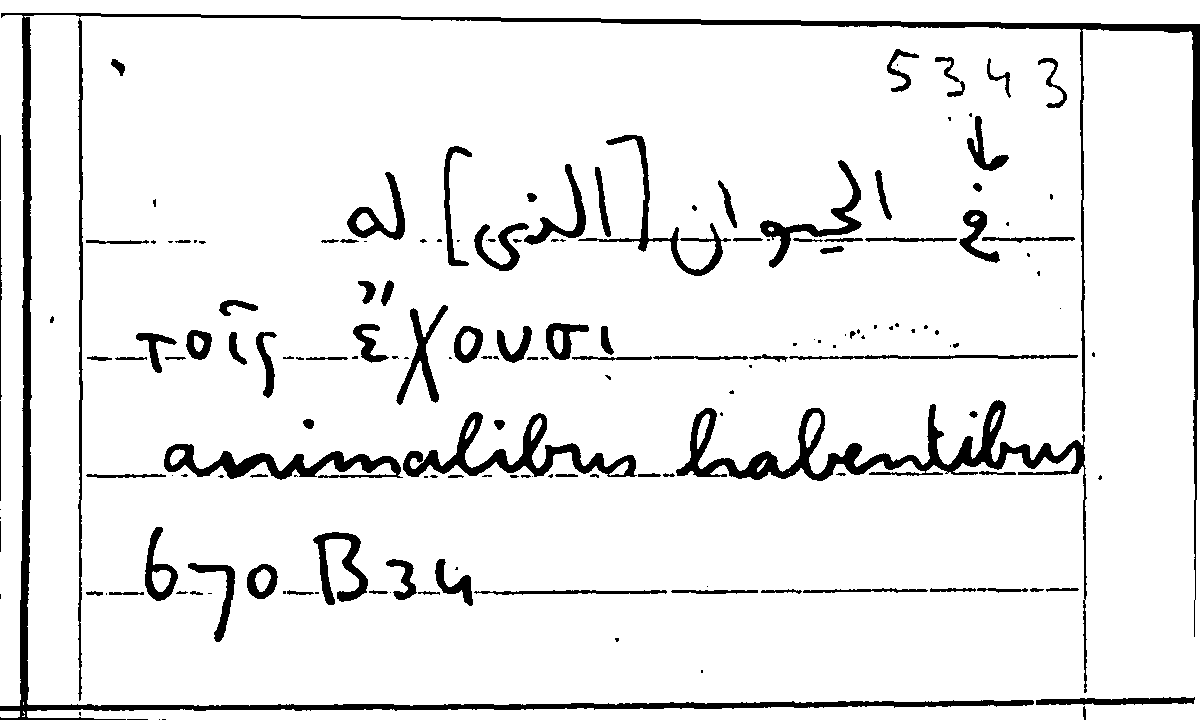 5343
في الحيوان [الذي] له
τοῖς ἔχουσι
animalibus habentibus
670 B 34